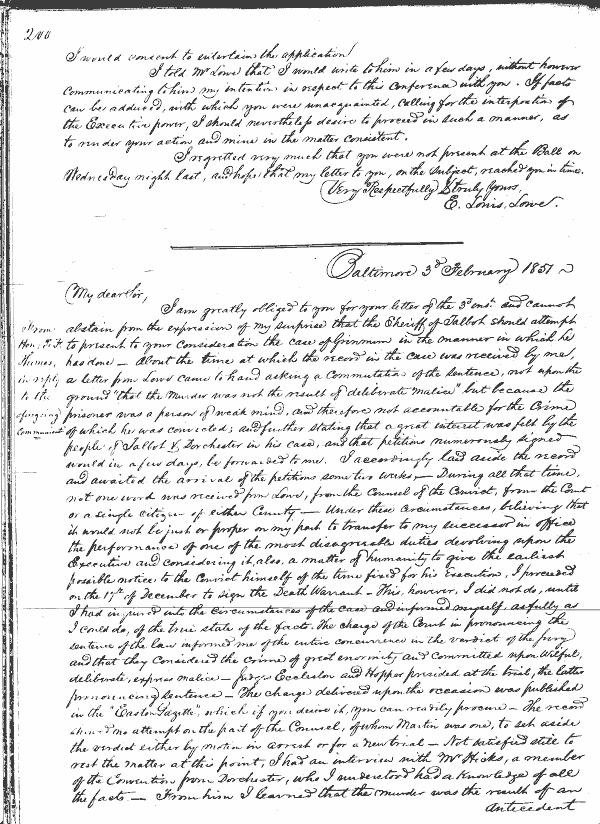 200
I would consent to entertain the application!
I told Mr Lowe that I would write to him in a few days, without however
communicating to him my intention in respect to this Conference with you. If facts
can be adduced, with which you were unacquainted, calling for the interposition of
the Executive power, I should nevertheless desire to proceed in such a manner, as
to render your action and mine in the matter consistent.
I regretted very much that you were not present at the Ball on
Wednesday night last, and hope that my letter to you, on the subject, reached you in time.
Very Respectfully & truly Yours,
E. Louis Lowe.
Baltimore 3d February 1851
My dear Sir,
I am greatly obliged to you for your letter of the 3d inst. and cannot
abstain from the expression of my surprise that the Sheriff of Talbot should attempt
to present to your Consideration the case of in the manner in which he
has done - About the time at which the record in the case was received by me,
a letter from Lowe came to hand asking a Commutation of the sentence, not upon the
ground "that the Murder was not the result of deliberate Malice" but because the
prisoner was a person of weak mind, and therefore not accountable for the Crime
of which he was convicted; and further stating that a great interest was felt by the
people of Talbot & Dorchester in his case, and that petitions numerously signed
would in a few days, be forwarded to me. I accordingly laid aside the record
and awaited the arrival of the petitions some two weeks, - During all that time,
not one word was received from Lowe, from the Counsel of the Convict, from the Court
or a single citizen of either County - Under these circumstances, believing that
it would not be just or proper on my part to transfer to my successor in office
the performance of one of the most disagreeable duties devolving upon the
Executive and considering it, also, a matter of humanity to give the earliest
possible notice to the Convict himself of the time fixed for his Execution, I proceeded
on the 17th of December to sign the Death Warrant - This, however, I did not do, until
I had inquired into the Circumstances of the case and informed myself, as fully as
I could do, of the true state of the facts. The charge of the Court in pronouncing the
sentence of the law informed me of the entire concurrence in the verdict of the Jury
and that they Considered the crime of great enormity and Committed upon Wilful,
deliberate, express malice - Judges Eccleston and Hopper presided at the trial, the latter
pronouncing sentence - The charge delivered upon the occasion was published
in the "Easton Gazette", which if you desire it, you can readily procure - The record
shewed no attempt on the part of the Counsel, of whom Martin was one, to set aside
the verdict either by motion in arrest or for a new trial - Not satisfied still to
rest the matter at this point, I had an interview with Mr Hicks, a member
of the Convention from Dorchester, who I understood had a knowledge of all
the facts - From him I learned that the murder was the result of an
antecedent
From
Hon.
Thomas,
in reply
to the
foregoing